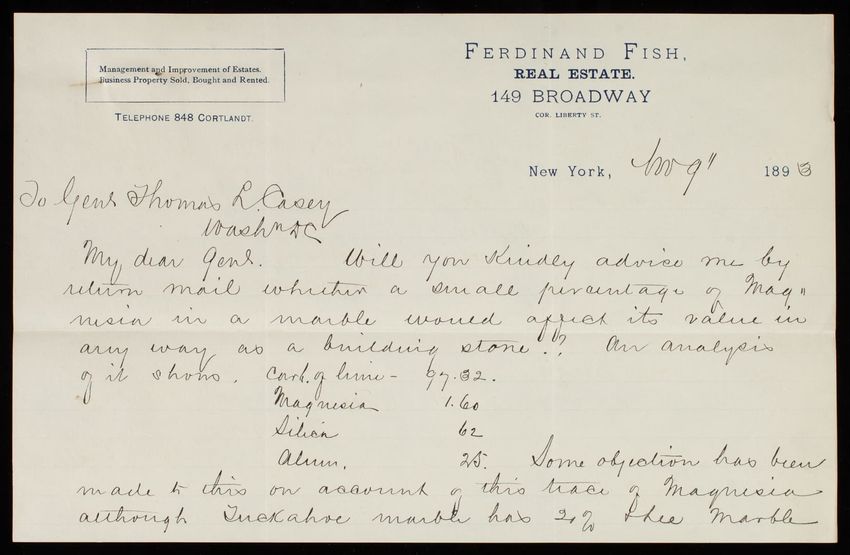 Management and Improvement of Estates.
Business Property Sold, Bought and Rented.
TELEPHONE 848 CORTLANDT.
FERDINAND FISH,
REAL ESTATE.
149 BROADWAY
COR. LIBERTY ST.
New York, Nov 9" 1893
To Genl Thomas L. Casey
Washn DC
My dear Genl. Will you Kindly advise me by
return mail whether a small percentage of Mag"
nesia in a marble would affect its value in
any way as a building stone!? An analysis
of it shows. Carb. of lime - 97.32.
Magnesia 1.60
Silica 62
Alum. 25. Some objection has been
made to this on account of this trace of Magnesia
although Tuckahoe marble has 20% & Lee Marble